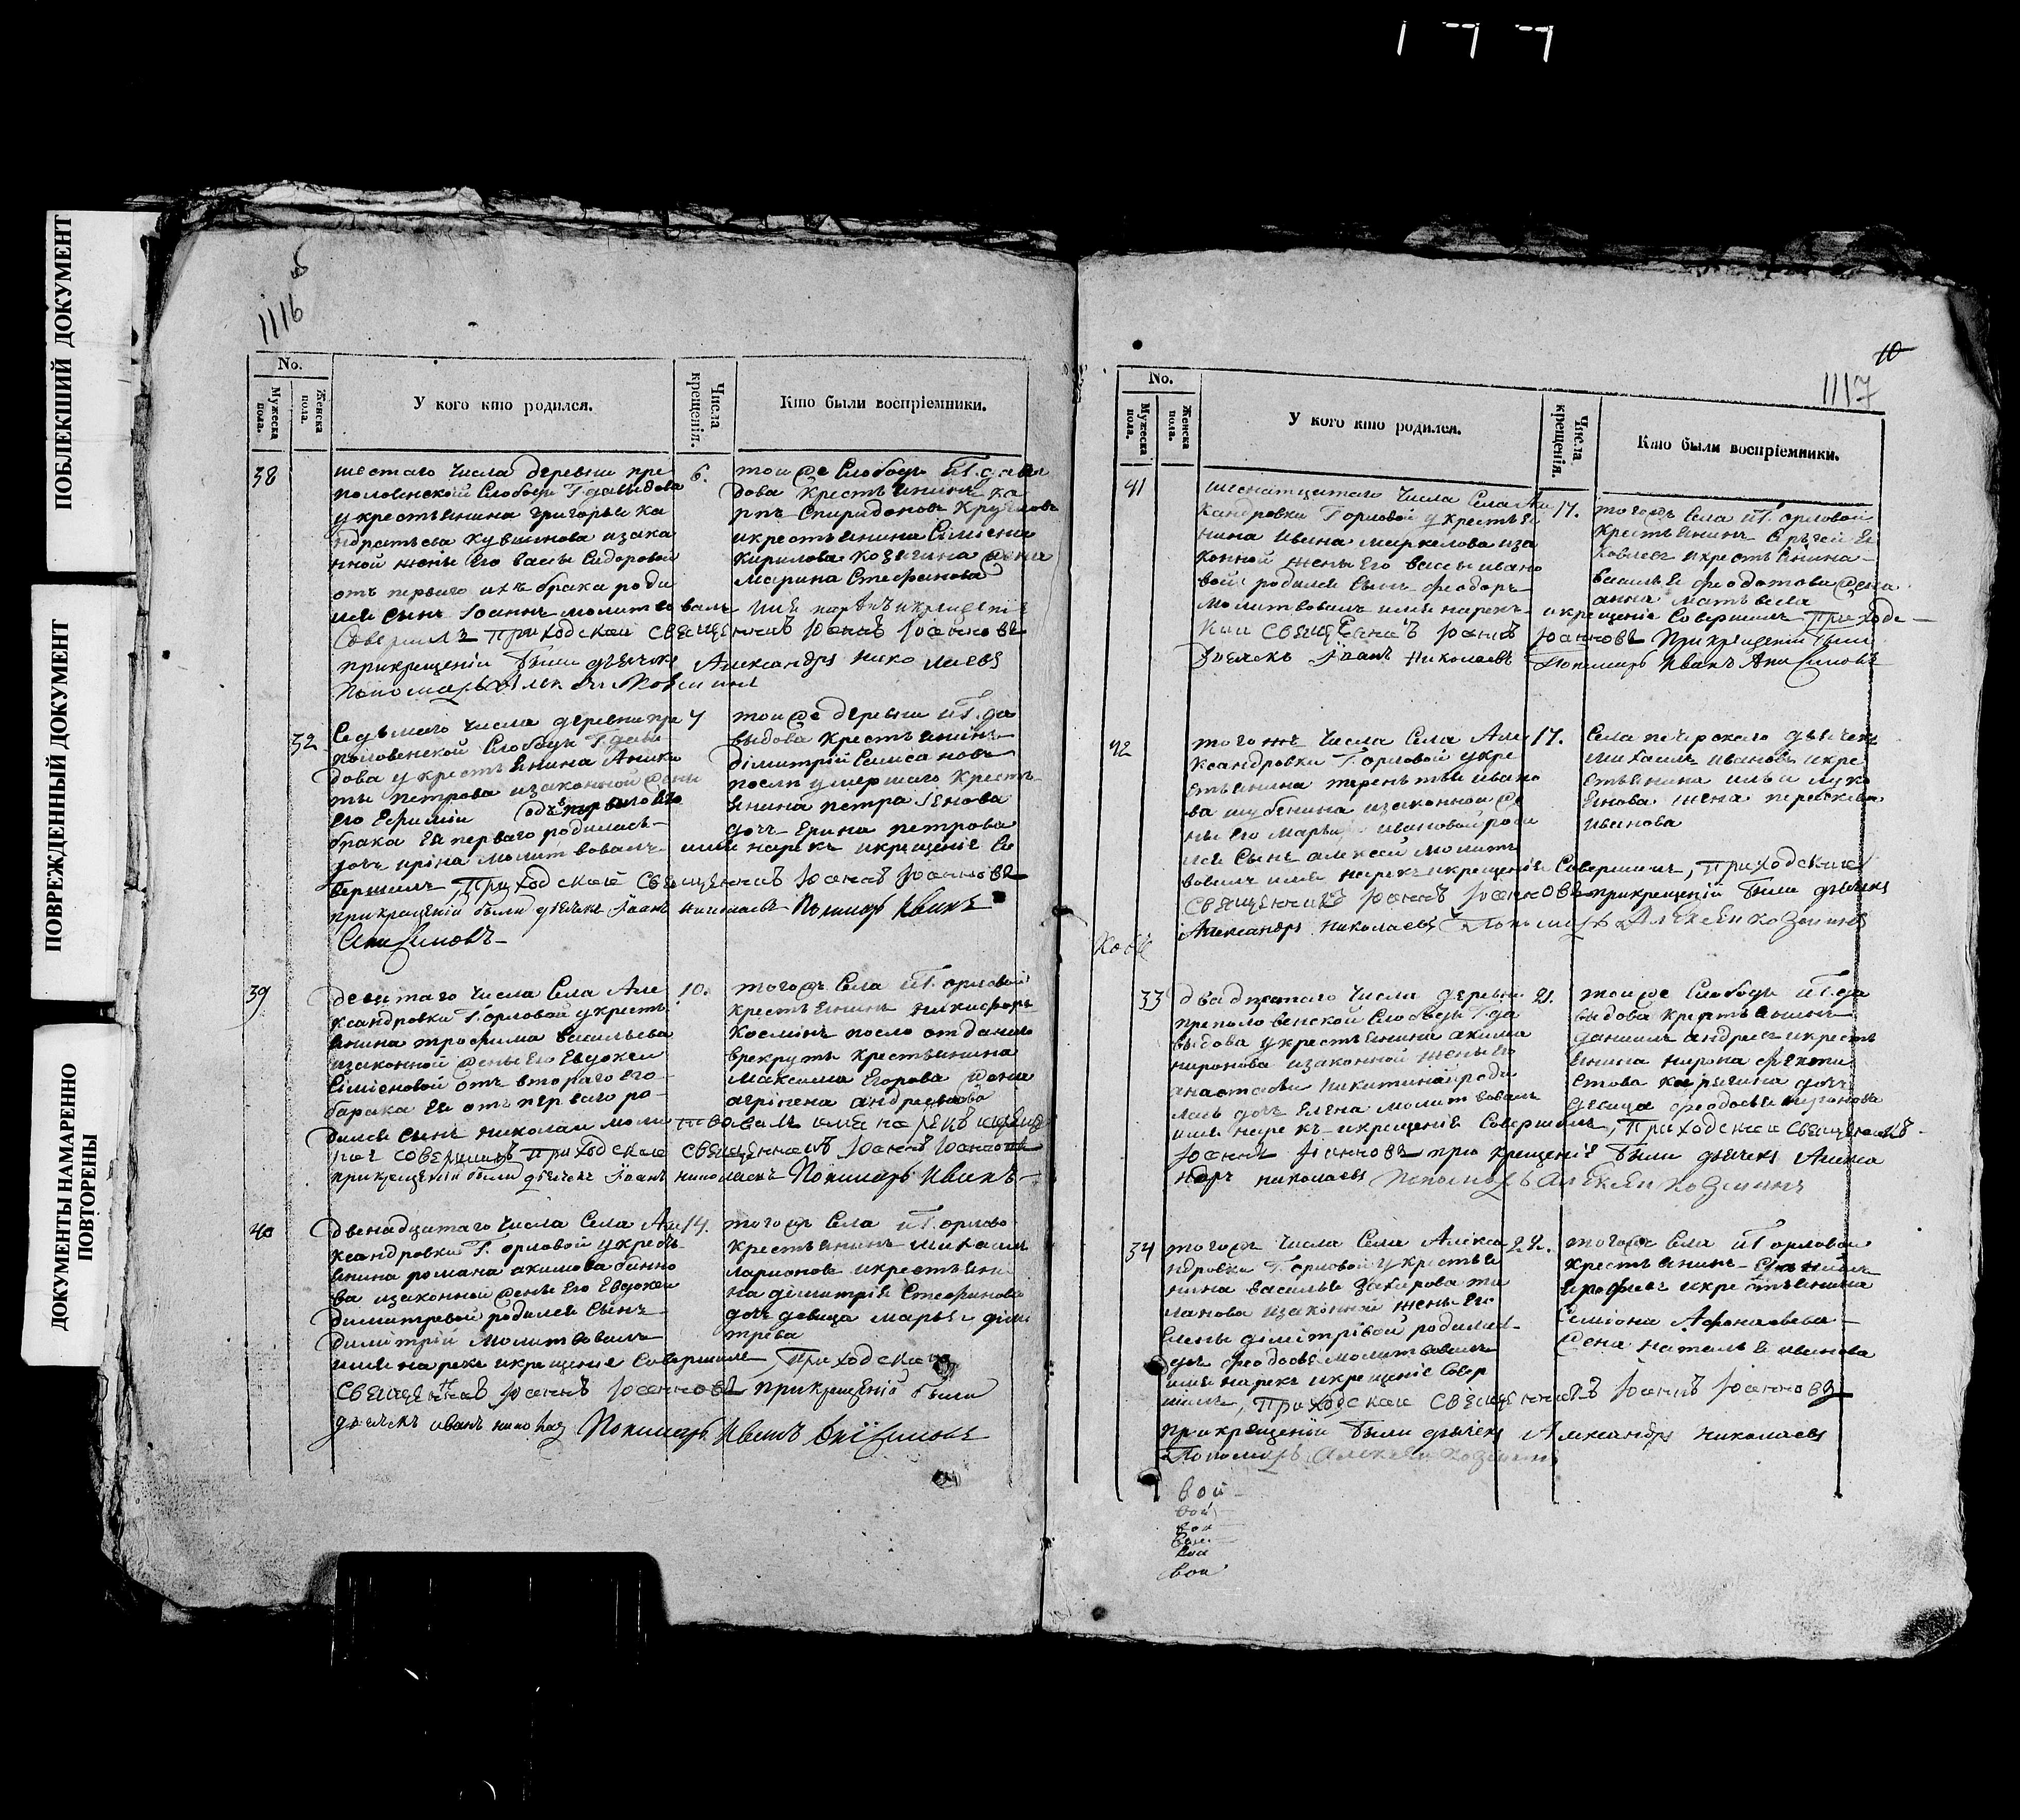 177
ПОБЛЕКШИЙ ДОКУМЕНТ
ПОВРЕЖДЕННЫЙ ДОКУМЕНТ
ДОКУМЕНТЫ НАМАРЕННО
ПОВТОРЕНЫ
1116
No.
Мужеска пола.
Женска пола.
У кого кто родился.
Числа крещенія.
Кто были воспріемники.
38
шестаго числа деревни пре
половенской слободы Г. давыдова
у крестьянина григорья ка
ндратьева изако
нной жены его васы сидоровой
отъ перваго ихъ брака роди
лся сынъ Іоаннъ молитвовалъ имя нарекъ и крещеніе
совершилъ приходской священникъ Іоаннъ Іоанновъ
прикрещеніи были дьячекъ Александръ николаевъ
6.
тойже слободы и Г. давы
дова крестьянинъ ка
рпъ спиридоновъ
икрестьянина симіона
кирилова жена
марина стефанова
32
седьмаго числа деревни пре
половенской слободы Г. давы
дова у крестьянина аники
ты петрова изаконной жены
его ефиміи отъ перваго его
брака ея перваго родилась
дочь ирина молитвовалъ имя нарекъ икрещеніе со
вершилъ приходской священникъ Іоаннъ Іоанновъ
прикрещеніи были дьячекъ Іоанъ николаевъ Пономарь Иванъ
Анисимовъ
7
тойже деревни и Г. да
выдова крестьянинъ
димитрій
посли умершаго кресть
янина петра
дочь ирина петрова
39
девятаго числа села Але
ксандровки Г. орловой укресть
янина трофима васильева
изаконной жены его евдокеи
симіоновой отъ втораго его
брака ея отъ перваго ро
дился сынъ николай молитвовалъ имя нарекъ икреще
ніе совершилъ приходской священникъ Іоаннъ Іоанновъ
прикрещеніи были дьячекъ Іоанъ николаевъ Пономарь Иванъ
10.
тогожъ села и Г. орловой
крестьянинъ никифоръ
косминъ посло отданаго
врекруты крестьянина
максима егорова жена
агріпена андреянова
40
двенадцатаго числа села Але
ксандровки Г. орловой укресть
янина романа акимова
изаконной жены его евдокеи
димитревой родился сынъ
димитрій молитвовалъ
имя нарекъ икрещеніе совершилъ приходской
священникъ Іоаннъ Іоанновъ прикрещеніи были
дьячекъ иванъ Пономарь Иванъ Анісимовъ
14.
тогожъ села и Г. орлово
крестьянинъ михаилъ
ларионовъ икрестьяни
на димитрія стефанова
дочь девица марья дими
трева
10
1117
No.
Мужеска пола.
Женска пола.
У кого кто родился.
Числа крещенія.
Кто были воспріемники.
41
числа села Але
ксандровки Г. орловой укрестья
нина ивана маркелова иза
конной жены его васы ивано
вой родился сынъ феодоръ
молитвовалъ имя нарекъ икрещеніе совершилъ приходс
кои священникъ Іоаннъ Іоанновъ прикрещеніи были
дьячекъ Іоанъ николаевъ Пономарь Иванъ Анисимовъ
17.
тогожъ села и Г. орловой
крестьянинъ сергей я
ковлевъ икрестьянина
василья феодотова жена
анна матвеева
42
тогожъ числа села Але
ксандровки Г. орловой укре
стьянина терентья ивано
ва шубенина изаконной же
ны его марьи ивановой роди
лся сынъ алексей молит
вовалъ имя нарекъ икрещеніе совершилъ, приходской
священникъ Іоаннъ Іоанновъ прикрещеніи были дьячекъ
Александръ николаевъ Пономарь Алексей козминъ
17.
села печерскаго дьячекъ
михаилъ ивановъ икре
стьянина
жена
иванова
33
двадцатаго числа деревни
преполовенской слободы Г. да
выдова укрестьянина акима
миронова изаконной жены его
анастасьи никитиной роди
лась дочь елена молитвовалъ
имя нарекъ икрещеніе совершилъ, приходской священникъ
Іоаннъ Іоанновъ при крещеніе были дьячекъ Алекса
ндръ николаевъ Пономарь Алексей козминъ
21.
тойже слободы и Г. да
выдова крестьянинъ
данилъ андреевъ икресть
янина мирона
дочь
девица феодосья миронова
34
тогожъ числа села Алекса
ндровки Г. орловой укрестья
нина василья
изаконной жены его
елены димітріевой родилась
дочь феодосья молитвовалъ
имя нарекъ икрещеніе совер
шилъ, приходской священникъ Іоаннъ Іоанновъ
прикрещеніи были дьячекъ Александръ николаевъ
Пономарь Алексей козминъ
22.
тогожъ села и Г. орловой
крестьянинъ
ерофеевъ икрестьянина
симіона Афонасьева
жена наталья иванова
вой
вой
вой
вой
вой
вой